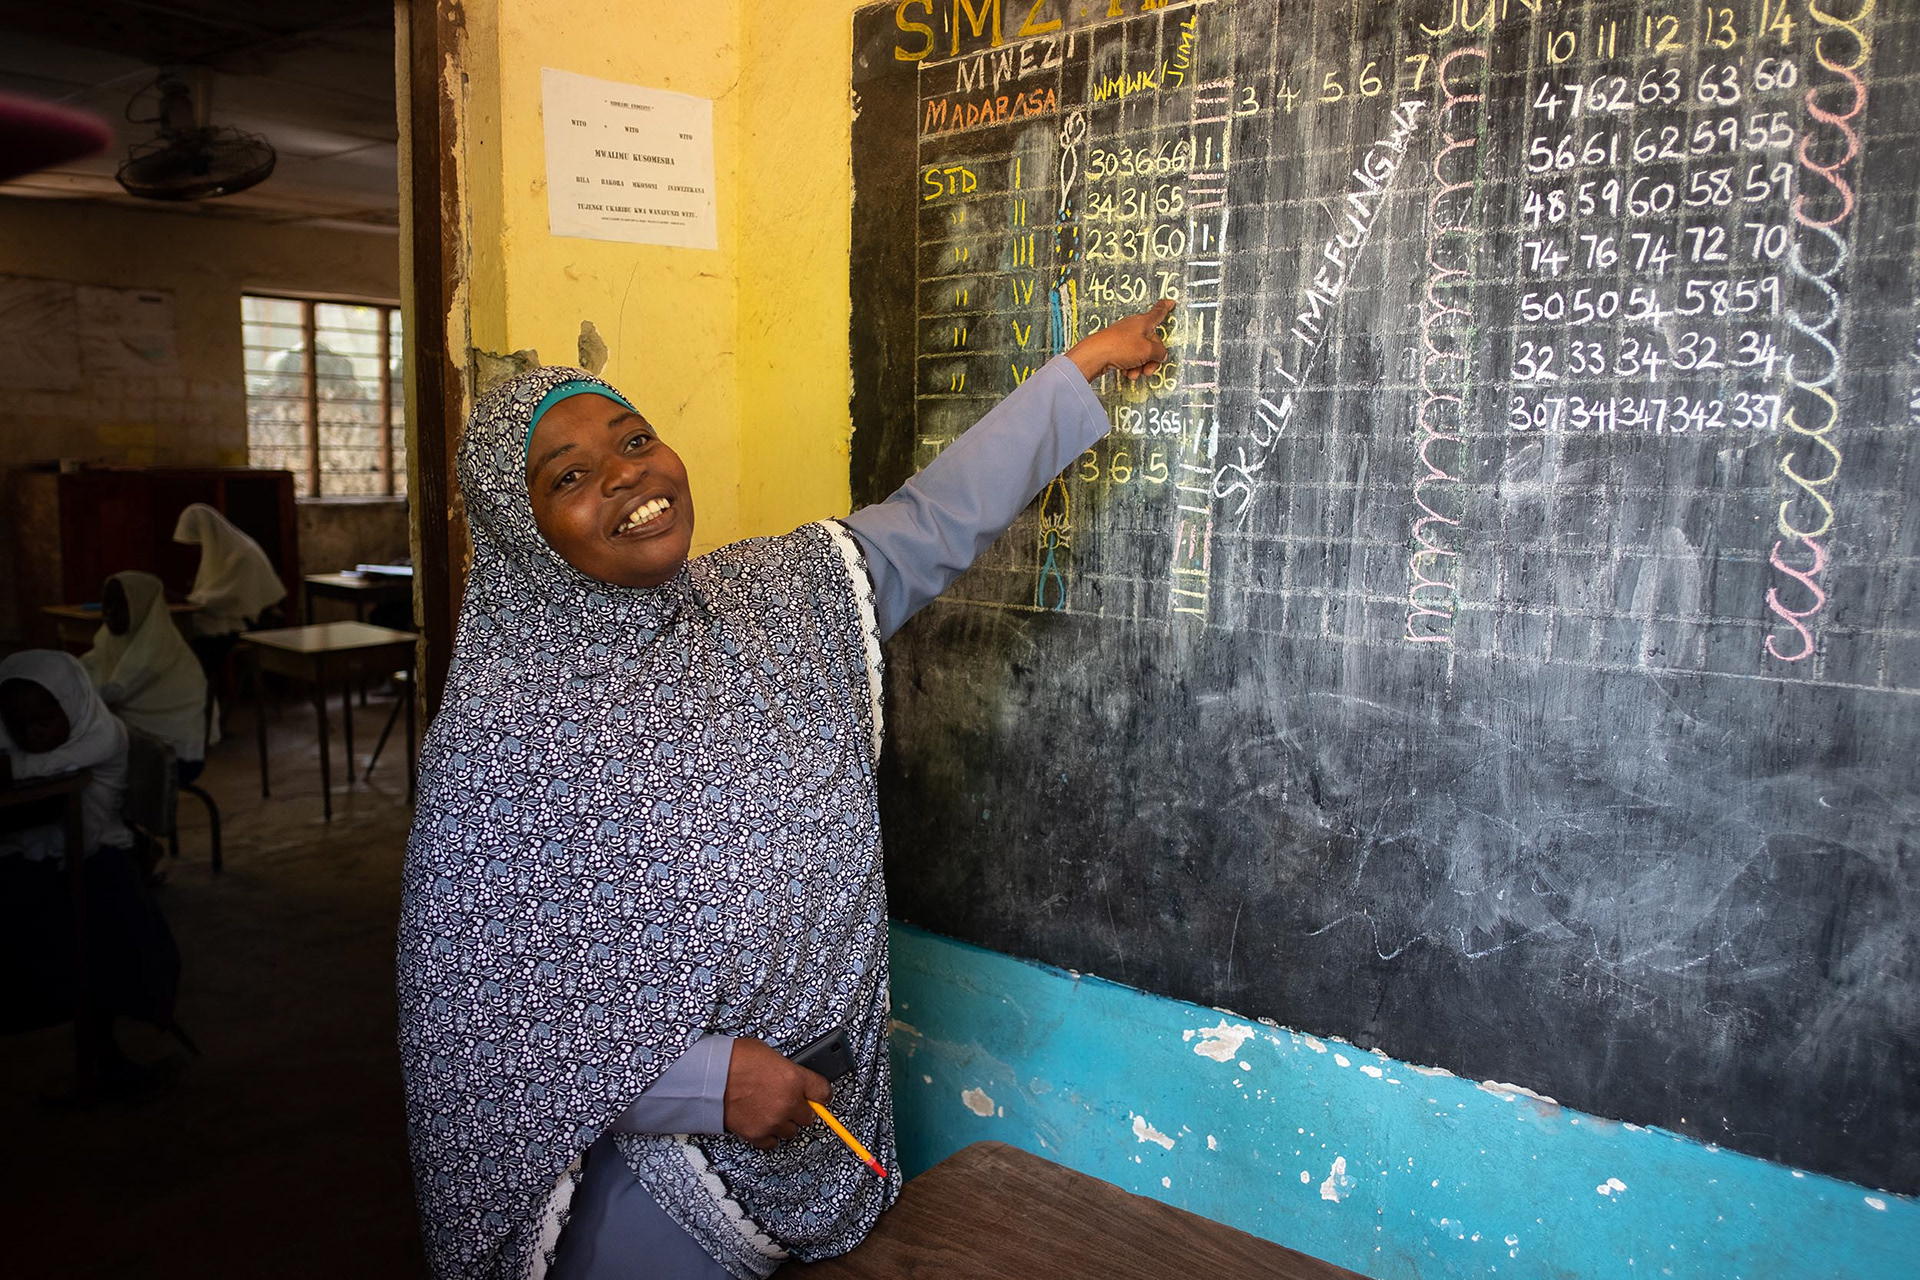 WITO WITO WITO
MWALIMU KUSOMESHA
BILA BAKORA MKONONI INAWEZEKANA
TUJENGE UKARIBU KWA WANAFUNZI WETU.
SMZ
MWEZI
MADARASA WM WK JUML
STD I 30 36 66
" II 34 31 65
" III 23 37 60
" IV 46 30 76
" V
" 36
182 365
3 6 5
3 4 5 6 7
SKULI IMEFUNGWA
JUN
10 11 12 13 14
47 62 63 63 60
56 61 62 59 55
48 59 60 58 59
74 76 74 72 70
50 50 54 58 59
32 33 34 32 34
307 341 347 342 337